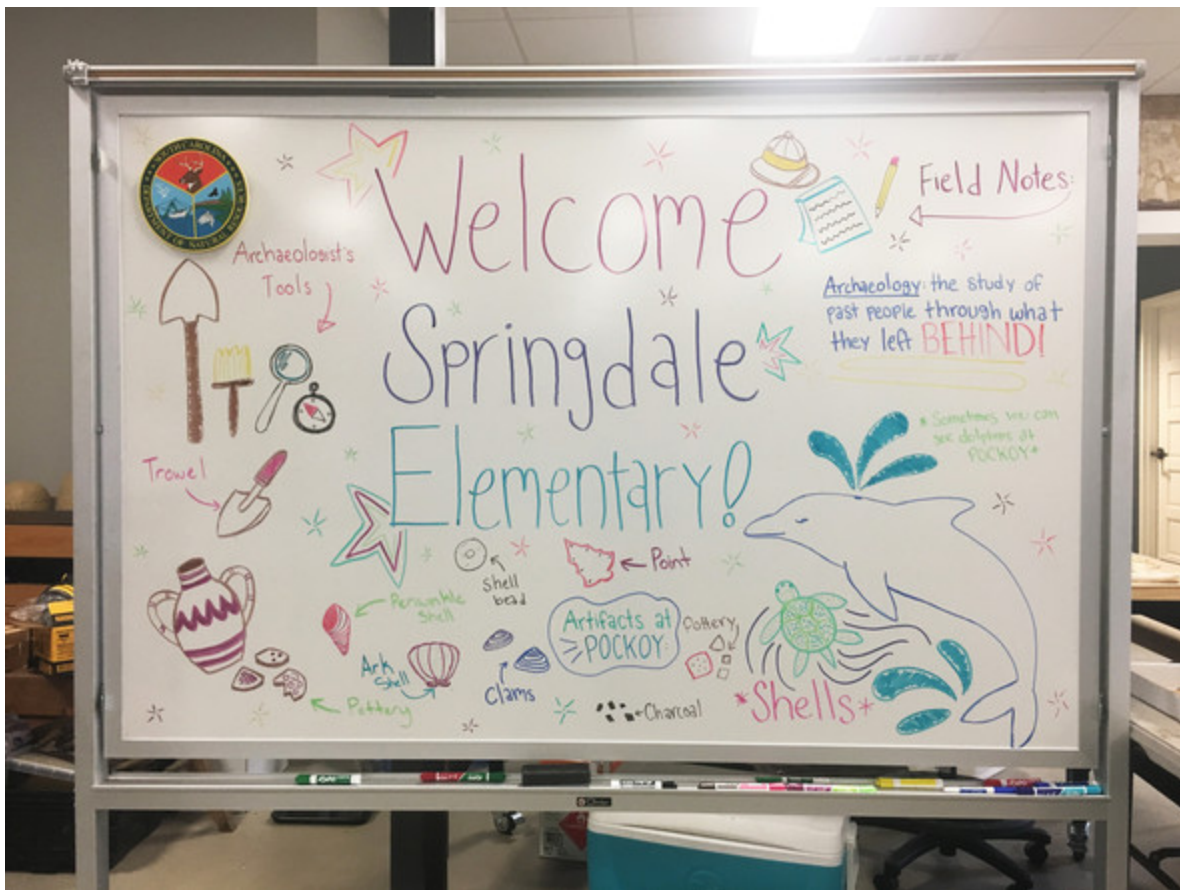 SOUTH CAROLINA
DEPARTMENT OF NATURAL RESOURCES
Welcome
Springdale
Elementary!
Field Notes:
Archaeologist's
Tools
Archaeology: the study of
past people through what
they left BEHIND!
*Sometimes we can
see dolphins at
POCKOY*
Trowel
Shell
bead
Point
Periwinkle
Shell
Artifacts at
POCKOY:
Pottery
Ark
Shell
Clams
Pottery
Charcoal
*Shells*